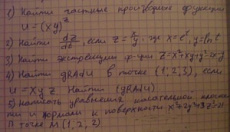 1) Найти частные производные функции
u = (xy)^z
2) Найти dz/dt, если z = x/y, где x = e^t, y = ln t
3) Найти экстремум ф-ции z = x²+xy+y²
4) Найти gradu в точке (1, 2, 3), если
u = xyz Найти |gradu|
5) Написать уравнения касательной
и нормали к поверхности
в точке M(1, 2, 2)